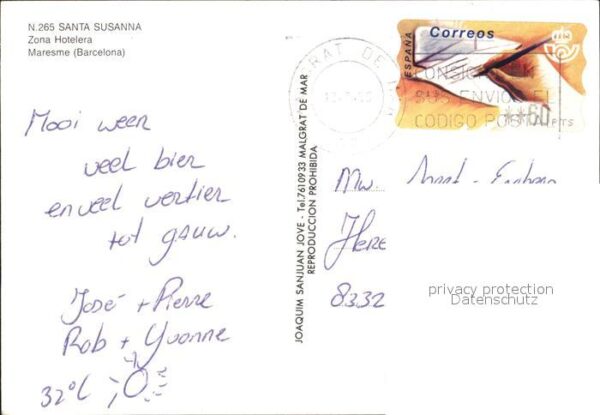 N.265 SANTA SUSANNA
Zona Hotelera
Maresme (Barcelona)
Mooi weer
veel bier
en veel vertier
tot gauw.
José + Pierre
Rob + Yvonne
32°C
JOAQUIM SANJUAN JOVE - Tel.7610933 MALGRAT DE MAR
REPRODUCCION PROHIBIDA
Correos
ESPAÑA
GRAT DE
CONSIGNE EN
SUS ENVIOS EL
CODIGO POSTAL
**60
PTS
Mw.
8332
privacy protection
Datenschutz